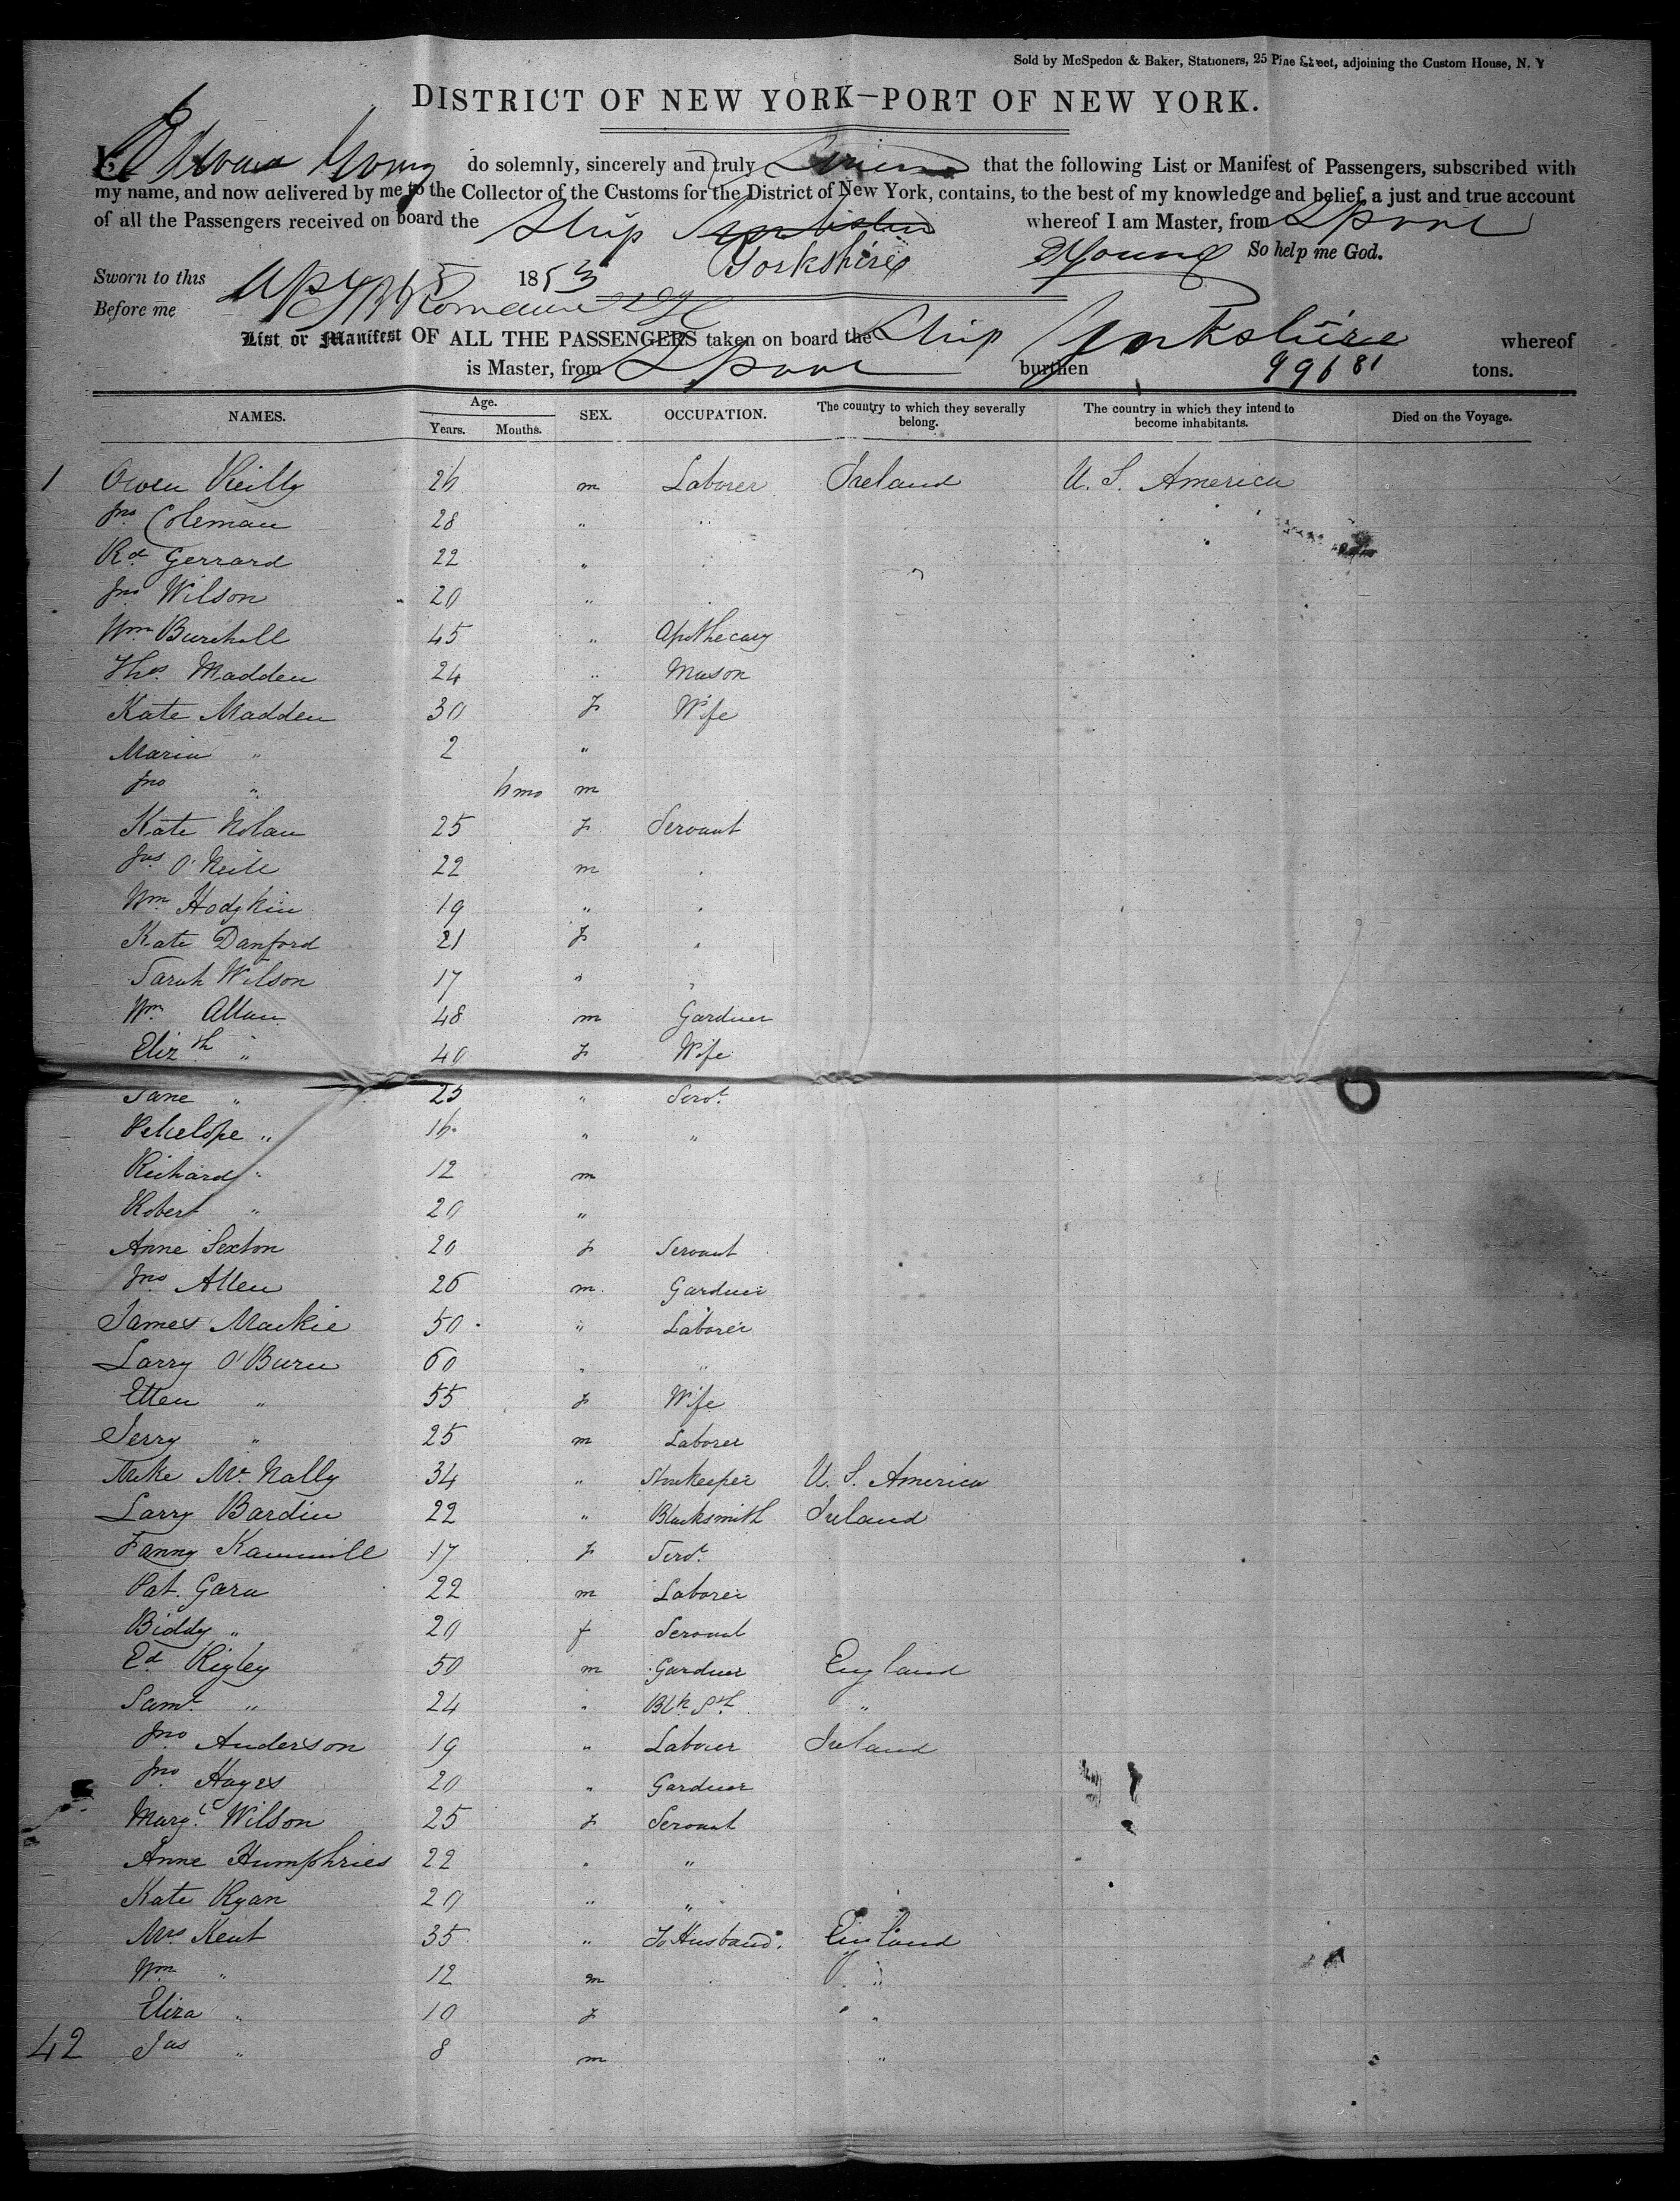 Sold by McSpedon & Baker, Stationers, 25 Pine Street, adjoining the Custom House, N. Y
DISTRICT OF NEW YORK—PORT OF NEW YORK.
I, Young do solemnly, sincerely and truly that the following List or Manifest of Passengers, subscribed with
my name, and now delivered by me to the Collector of the Customs for the District of New York, contains, to the best of my knowledge and belief, a just and true account
of all the Passengers received on board the Ship whereof I am Master, from Lpool
Yorkshire Young So help me God.
Sworn to this Apl 5 1853
Before me
List or Manifest OF ALL THE PASSENGERS taken on board the Ship Yorkshire whereof
is Master, from Lpool burthen 996 81 tons.
NAMES. Age. Years. Months. SEX. OCCUPATION. The country to which they severally belong. The country in which they intend to become inhabitants. Died on the Voyage.
1 Owen Reilly 26 m Laborer Ireland U. S. America
Jno Coleman 28 " "
Rd Gerrard 22 "
Jno Wilson 20 "
Wm Burchell 45 " Apothecary
Thos Madden 24 " Mason
Kate Madden 30 f Wife
Maria " 2 "
Jno " 6 mo m
Kate Nolan 25 f Servant
Jas O'Neile 22 m "
Wm Hodgkin 19 " "
Kate Danford 21 f "
Sarah Wilson 17 " "
Wm Allan 48 m Gardner
Elizth " 40 f Wife
Jane " 25 " Servt
Penelope " 16 " "
Richard " 12 m
Robert " 20 "
Anne Sexton 20 f Servant
Jno Allen 26 m Gardner
James Mackie 50 " Laborer
Larry O'Burn 60 " "
Ellen " 55 f Wife
Jerry " 25 m Laborer
Mike McNally 34 " Storekeeper U. S. America
Larry Bardin 22 " Blacksmith Ireland
Fanny 17 f Servt
Pat. Gara 22 m Laborer
Biddy " 20 f Servant
Ed Rigley 50 m Gardner England
Saml " 24 " Blk Sth "
Jno Anderson 19 " Laborer Ireland
Jno Hayes 20 " Gardner
Margt Wilson 25 f Servant
Anne Humphries 22 " "
Kate Ryan 20 " "
Mrs Kent 35 " To Husband. England
Wm " 12 m "
Eliza " 10 f "
42 Jas " 8 m "